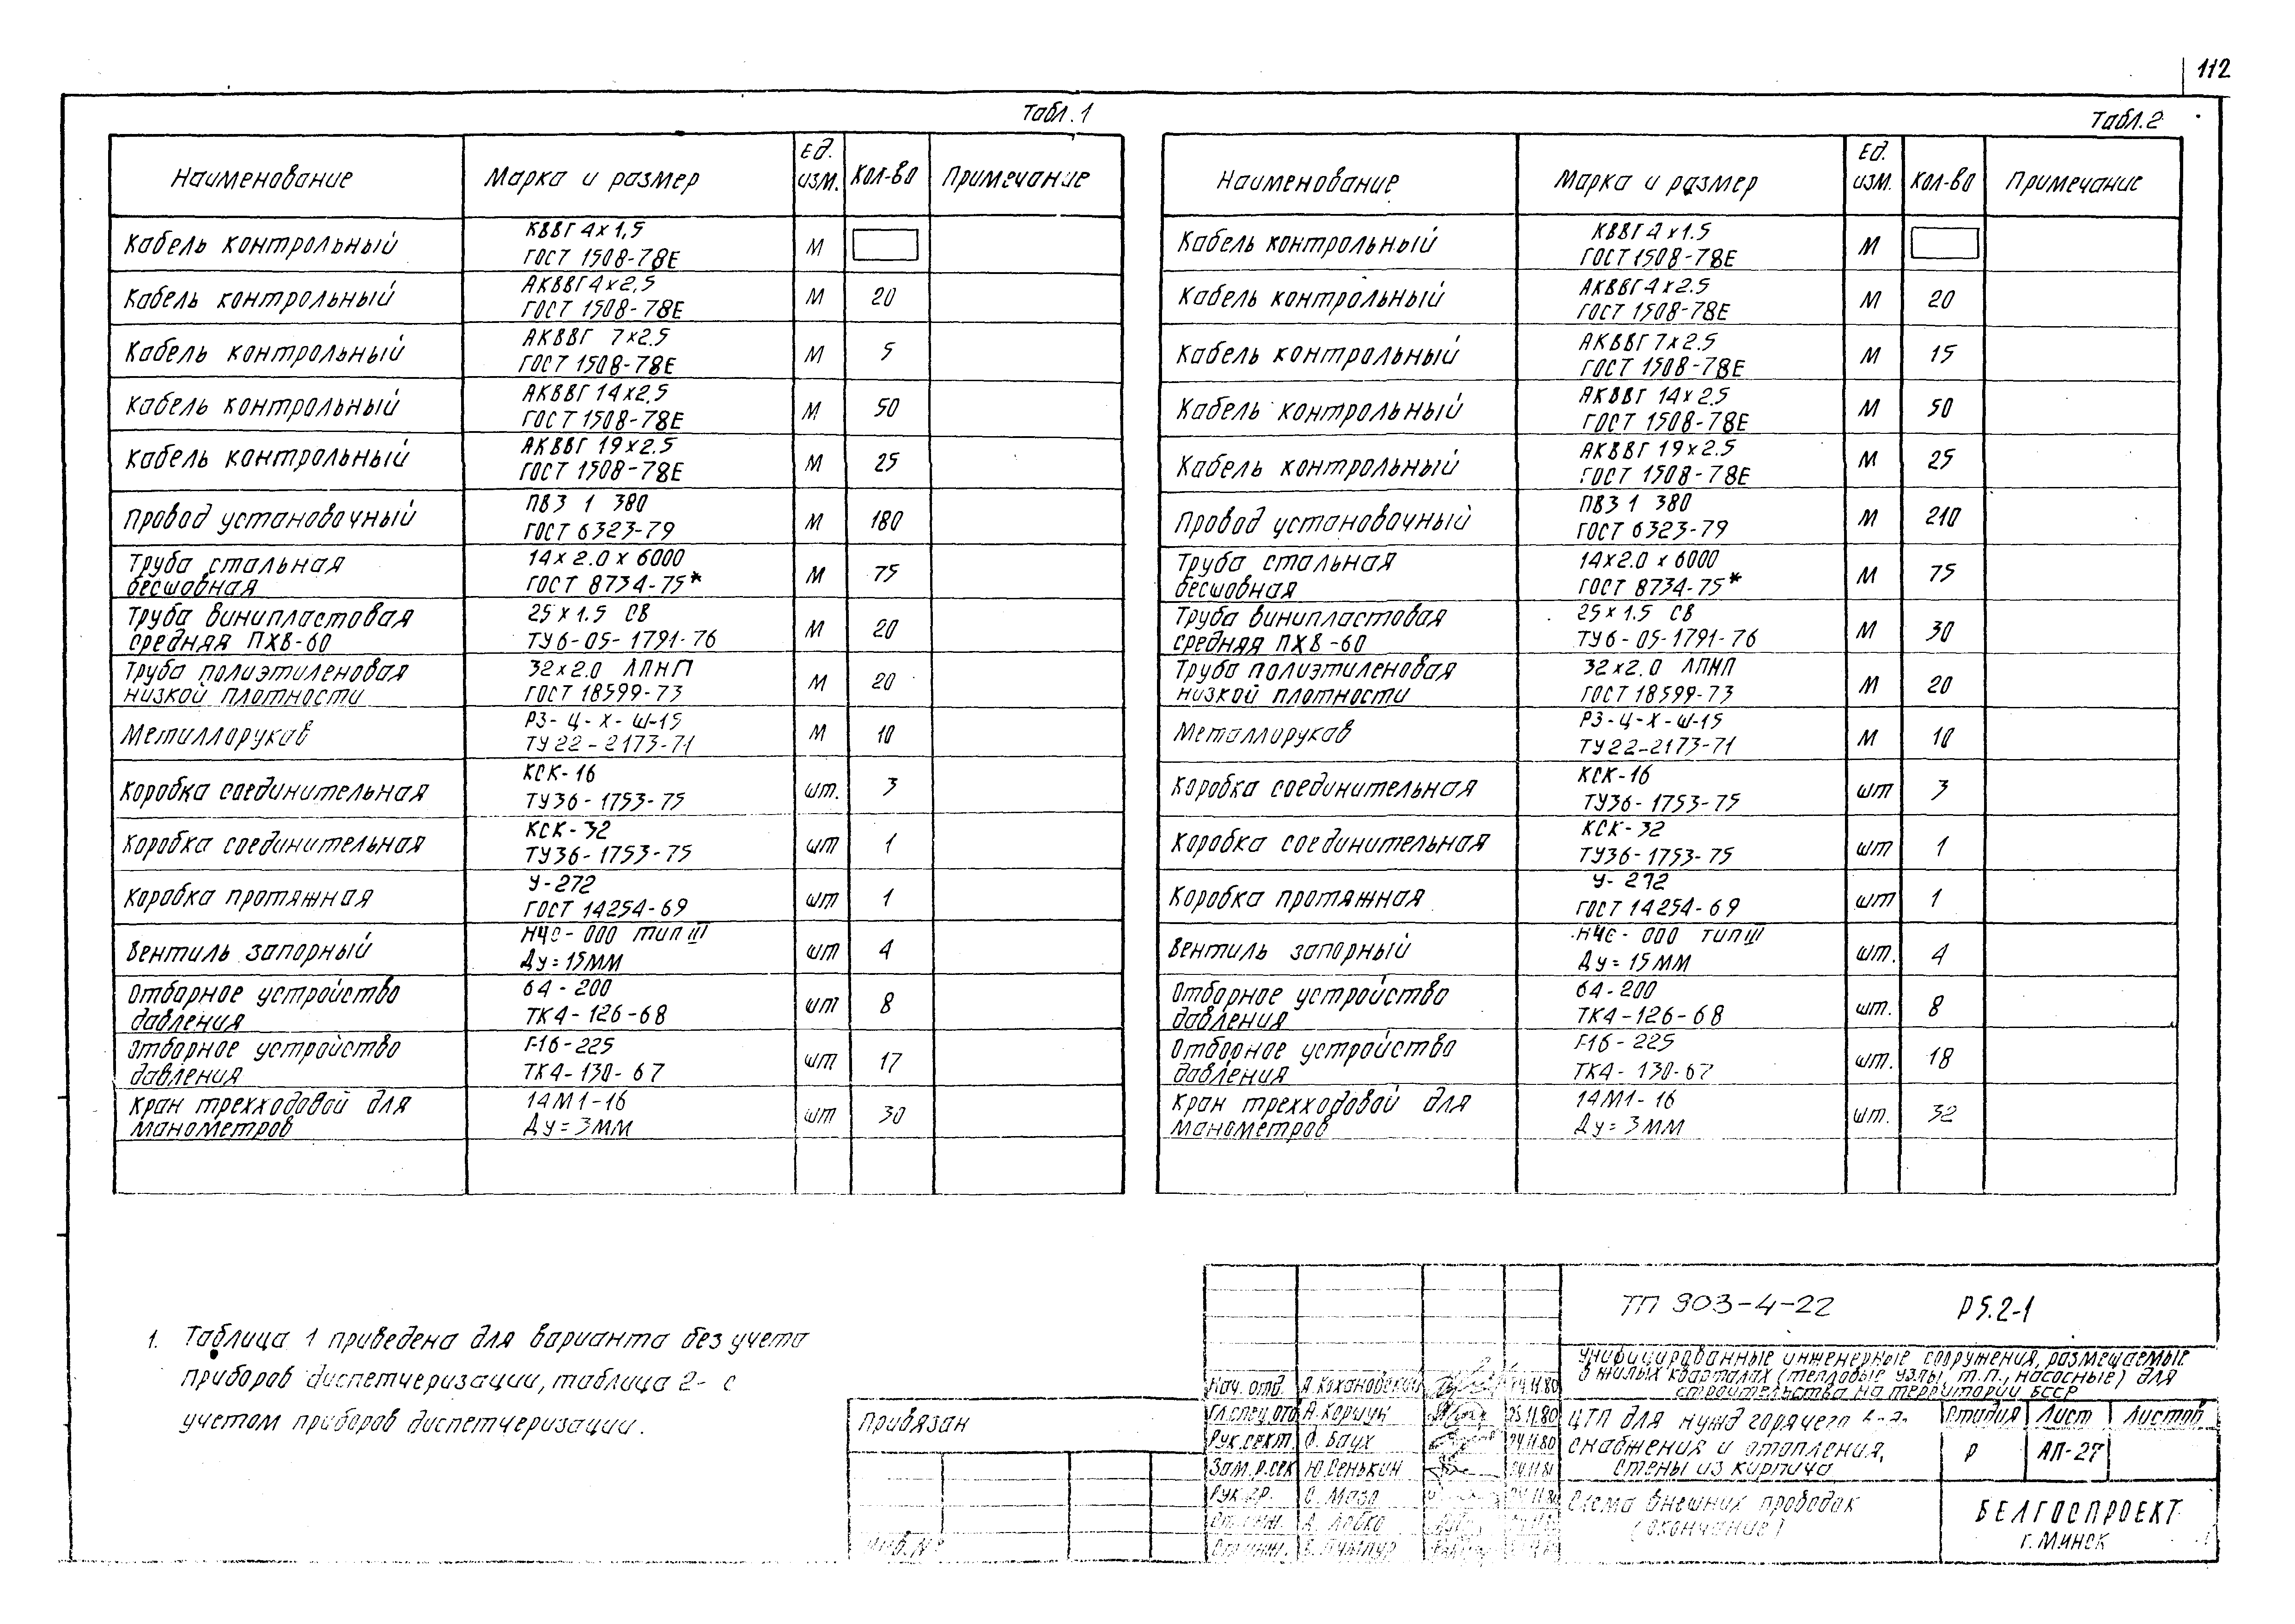 112
Табл. 1
Наименование Марка и размер Ед. изм. Кол-во Примечание
Кабель контрольный КВВГ 4х1,5 ГОСТ 1508-78Е М
Кабель контрольный АКВВГ 4х2,5 ГОСТ 1508-78Е М 20
Кабель контрольный АКВВГ 7х2.5 ГОСТ 1508-78Е М 5
Кабель контрольный АКВВГ 14х2,5 ГОСТ 1508-78Е М 50
Кабель контрольный АКВВГ 19х2.5 ГОСТ 1508-78Е М 25
Провод установочный ПВ3 1 380 ГОСТ 6323-79 М 180
Труба стальная бесшовная 14х2.0х6000 ГОСТ 8734-75* М 75
Труба винипластовая средняя ПХВ-60 25х1.5 СВ ТУ6-05-1791-76 М 20
Труба полиэтиленовая низкой плотности 32х2.0 ЛПНП ГОСТ 18599-73 М 20
Металлорукав РЗ-Ц-Х-Ш-15 ТУ22-2173-71 М 10
Коробка соединительная КСК-16 ТУ36-1753-75 шт. 3
Коробка соединительная КСК-32 ТУ36-1753-75 шт 1
Коробка протяжная У-272 ГОСТ 14254-69 шт 1
Вентиль запорный НЧС-000 тип III Ду=15мм шт 4
Отборное устройство давления 64-200 ТК4-126-68 шт 8
Отборное устройство давления Г-16-225 ТК4-130-67 шт 17
Кран трехходовой для манометров 14М1-16 Ду=3мм шт 30
Табл. 2
Наименование Марка и размер Ед. изм. Кол-во Примечание
Кабель контрольный КВВГ 4х1.5 ГОСТ 1508-78Е М
Кабель контрольный АКВВГ 4х2.5 ГОСТ 1508-78Е М 20
Кабель контрольный АКВВГ 7х2.5 ГОСТ 1508-78Е М 15
Кабель контрольный АКВВГ 14х2.5 ГОСТ 1508-78Е М 50
Кабель контрольный АКВВГ 19х2.5 ГОСТ 1508-78Е М 25
Провод установочный ПВ3 1 380 ГОСТ 6323-79 М 210
Труба стальная бесшовная 14х2.0х6000 ГОСТ 8734-75* М 75
Труба винипластовая средняя ПХВ-60 25х1.5 СВ ТУ6-05-1791-76 М 30
Труба полиэтиленовая низкой плотности 32х2.0 ЛПНП ГОСТ 18599-73 М 20
Металлорукав РЗ-Ц-Х-Ш-15 ТУ22-2173-71 М 10
Коробка соединительная КСК-16 ТУ36-1753-75 шт 3
Коробка соединительная КСК-32 ТУ36-1753-75 шт 1
Коробка протяжная У-272 ГОСТ 14254-69 шт 1
Вентиль запорный НЧС-000 тип III Ду=15мм шт. 4
Отборное устройство давления 64-200 ТК4-126-68 шт. 8
Отборное устройство давления Г-16-225 ТК4-130-67 шт. 18
Кран трехходовой для манометров 14М1-16 Ду=3мм шт. 32
1. Таблица 1 приведена для варианта без учета
приборов диспетчеризации, таблица 2- с
учетом приборов диспетчеризации.
Привязан
Инв.№
ТП 903-4-22 Р5.2-1
Унифицированные инженерные сооружения, размещаемые
в жилых кварталах (тепловые узлы, т.п., насосные) для
строительства на территории БССР
Нач. отд. А.Кохановский 24.11.80
Гл.спец.отд А.Коршун 25.11.80
Рук.сект. О. Баух 24.11.80
Зам.р.сек Ю.Сенькин
Рук.гр. С. Мазо
А. Лобко
ЦТП для нужд горячего в-д-
снабжения и отопления,
стены из кирпича
Стадия Лист Листов
Р АП-27
Схема внешних проводок
(окончание)
БЕЛГОСПРОЕКТ
г. Минск